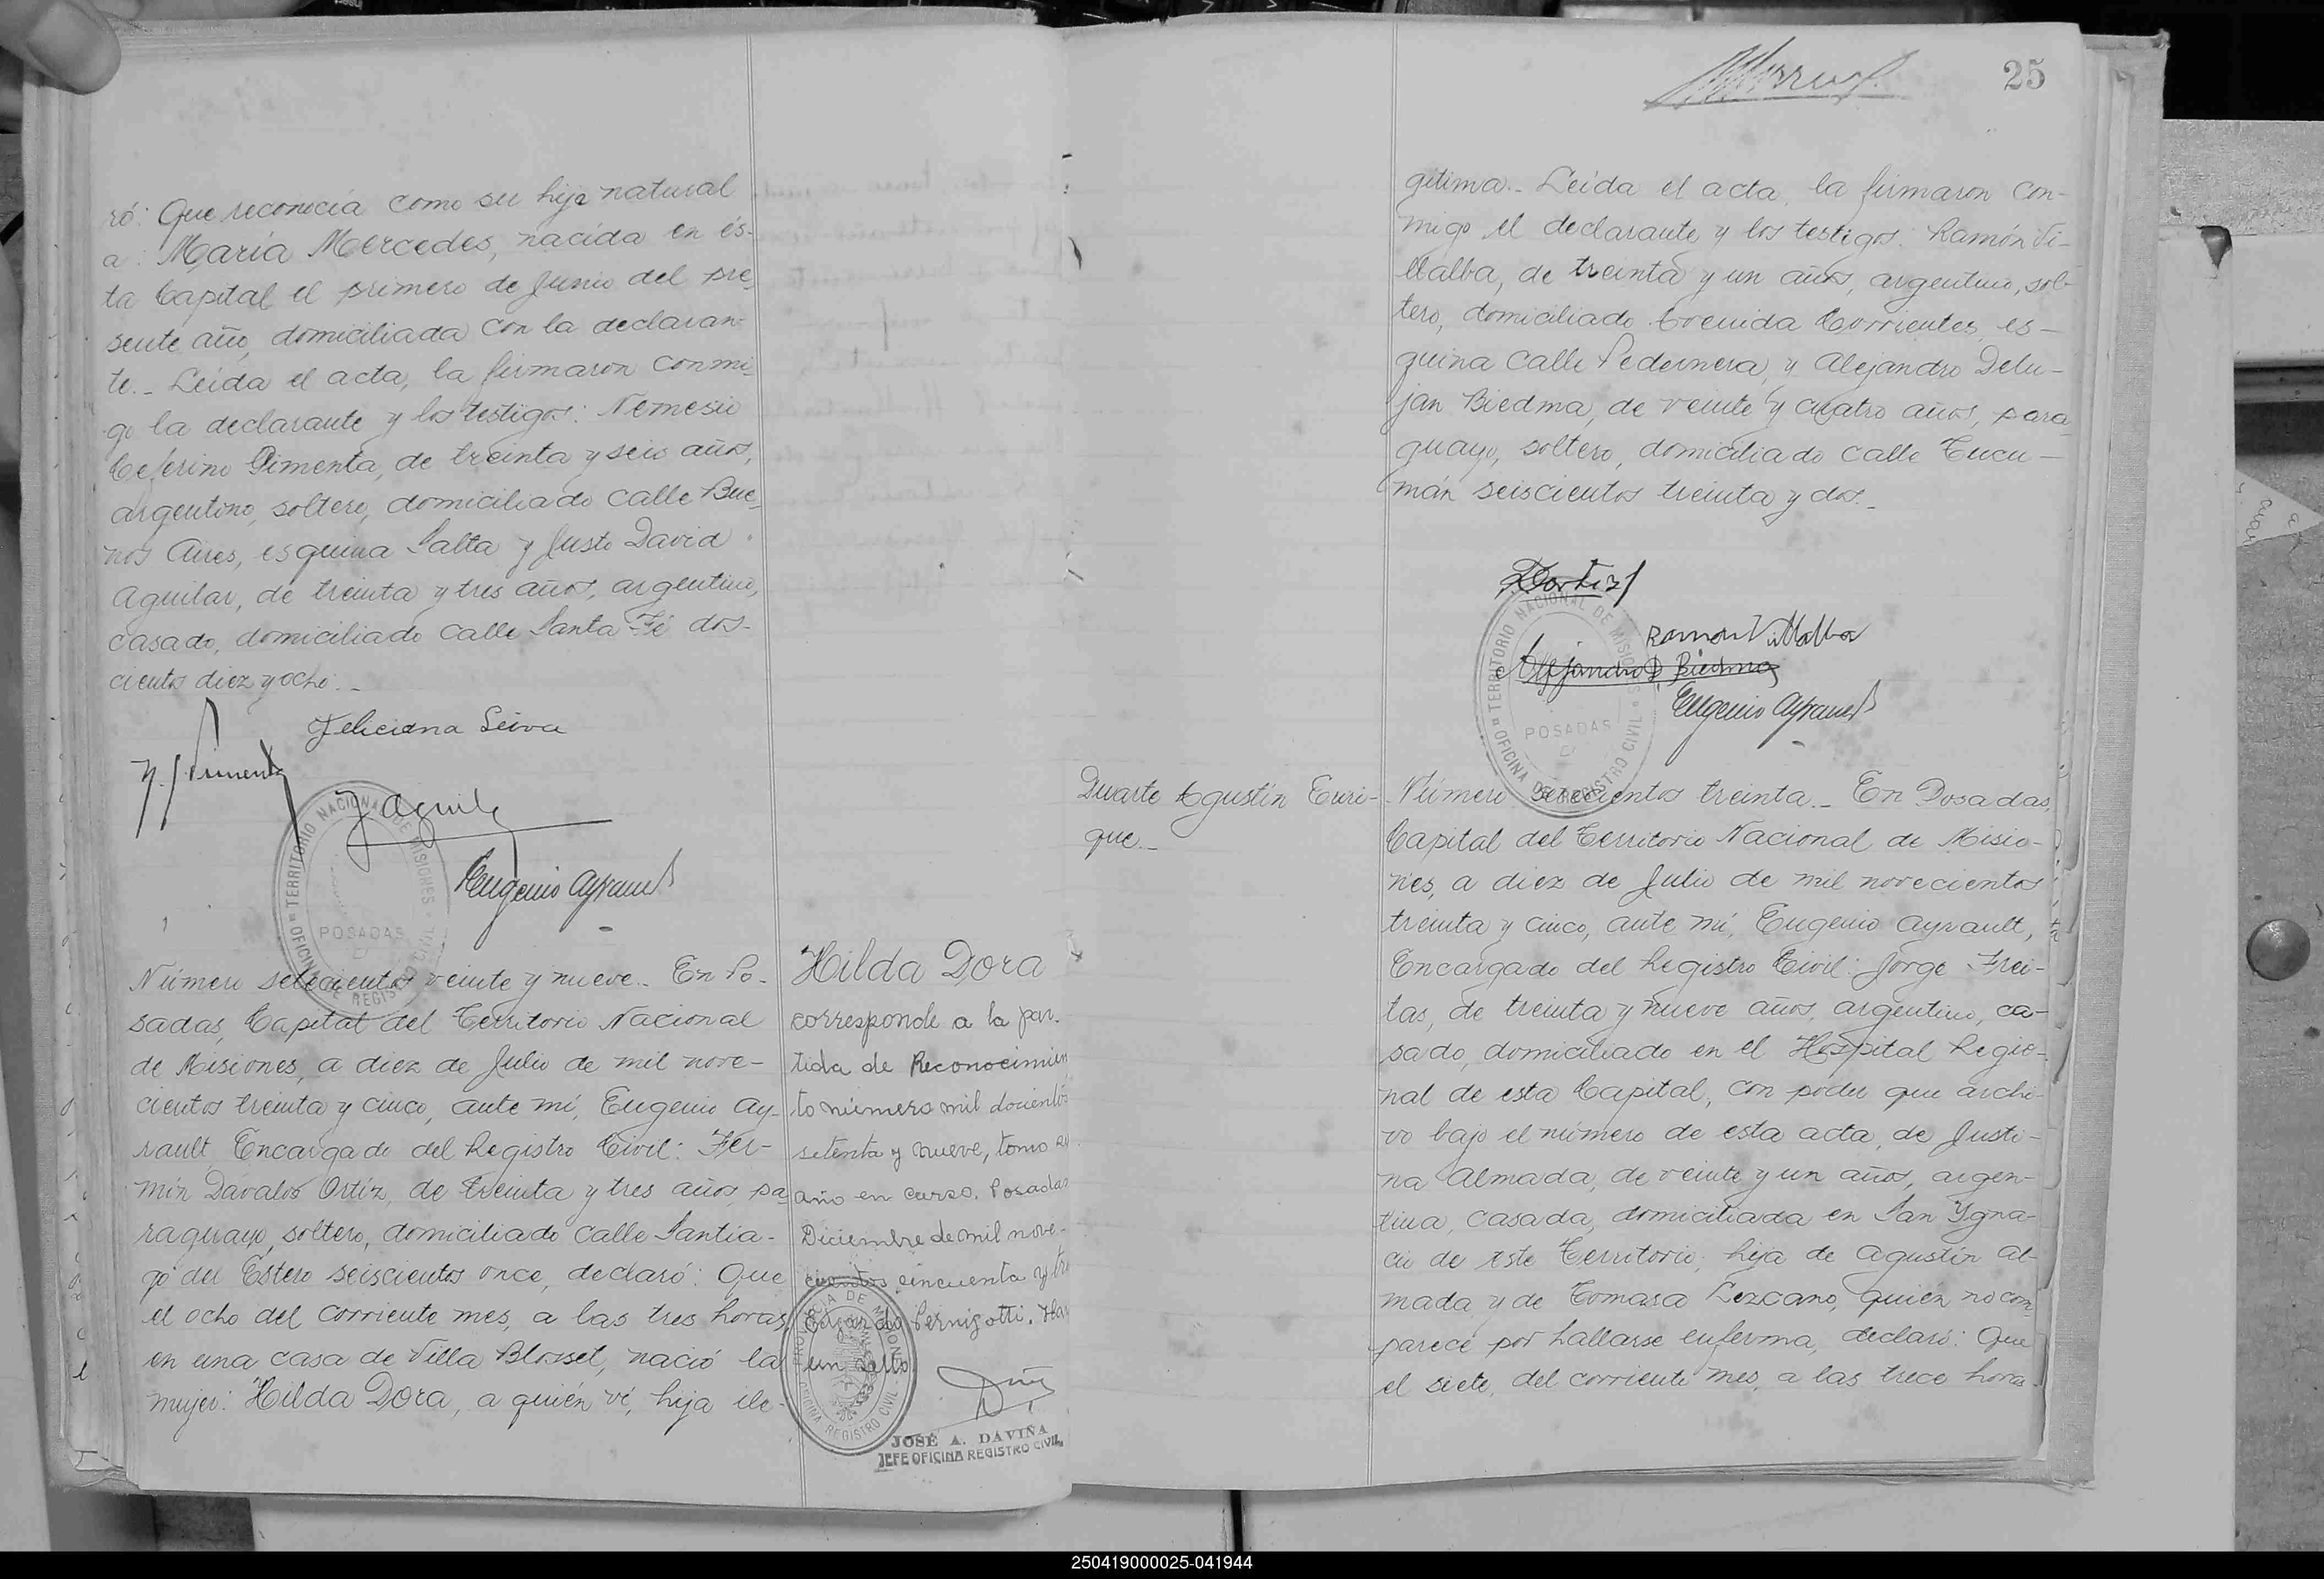 ró: Que reconocía como su hija natural
a: María Mercedes, nacida en és-
ta Capital el primero de Junio del pre-
sente año, domiciliada con la declaran-
te._ Leída el acta, la firmaron conmi-
go la declarante y los testigos: Nemesio
Ceferino Pimenta, de treinta y seis años,
argentino, soltero, domiciliado calle Bue-
nos Aires, esquina Salta y Justo David
Aguilar, de treinta y tres años, argentino,
casado, domiciliado calle Santa Fé dos-
cientos diez y ocho._
Feliciana Leiva
N. Pimenta
J Aguila
Eugenio Ayrault
TERRITORIO NACIONAL DE MISIONES
POSADAS
OFICINA DE REGISTRO CIVIL
Número setecientos veinte y nueve._ En Po-
sadas, Capital del Territorio Nacional
de Misiones, a diez de Julio de mil nove-
cientos treinta y cinco, ante mí, Eugenio Ay-
rault, Encargado del Registro Civil: Fer-
mín Dávalos Ortíz, de treinta y tres años, pa-
raguayo, soltero, domiciliado calle Santia-
go del Estero seiscientos once, declaró: Que
el ocho del corriente mes, a las tres horas,
en una casa de Villa Blosset, nació la
mujer: Hilda Dora, a quién ví, hija ile-
Hilda Dora
corresponde a la par-
tida de Reconocimien
to número mil docientos
setenta y nueve, tomo
año en curso. Posadas
Diciembre de mil nove-
cientos cincuenta y tre
Pernigotti. Hay
un sello
PROVINCIA DE MISIONES
OFICINA REGISTRO CIVIL
JOSÉ A. DAVIÑA
JEFE OFICINA REGISTRO CIVIL
25
gítima._ Leída el acta, la firmaron con-
migo el declarante y los testigos: Ramón Vi-
llalba, de treinta y un años, argentino, sol-
tero, domiciliado Avenida Corrientes, es-
quina calle Pedernera, y Alejandro Delu-
jan Biedma, de veinte y cuatro años, para
guayo, soltero, domiciliado calle Tucu-
mán seiscientos treinta y dos._
DOrtiz
Ramón Villalba
Alejandro D. Biedma
Eugenio Ayrault
TERRITORIO NACIONAL DE MISIONES
POSADAS
OFICINA DE REGISTRO CIVIL
Duarte Agustín Enri-
que._
Número setecientos treinta._ En Posadas,
Capital del Territorio Nacional de Misio-
nes, a diez de Julio de mil novecientos
treinta y cinco, ante mí, Eugenio Ayrault,
Encargado del Registro Civil: Jorge Frei-
tas, de treinta y nueve años, argentino, ca-
sado, domiciliado en el Hospital Regio-
nal de esta Capital, con poder que archi-
vo bajo el número de esta acta, de Justi-
na Almada, de veinte y un años, argen-
tina, casada, domiciliada en San Ygna-
cio de este Territorio, hija de Agustín Al-
mada y de Tomasa Lezcano, quién no com
parece por hallarse enferma, declaró: Que
el siete, del corriente mes, a las trece horas
250419000025-041944